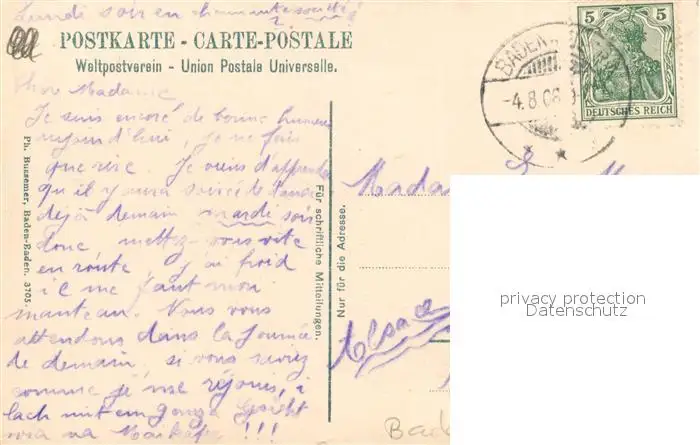 Lundi soir en charmante société
POSTKARTE - CARTE-POSTALE
Weltpostverein - Union Postale Universelle.
5 5
DEUTSCHES REICH
BADEN
-4.8.08
Chère Madame,
Je suis encore de bonne humeur
aujourd'hui, je ne fais
que rire. Je viens d'apprendre
qu'il y aura soirée de danse
déjà demain mardi soir
donc mettez-vous vite
en route, j'ai froid
il me faut mon
manteau. Nous vous
attendons dans la journée
de demain, si vous saviez
comme je me réjouis, i
lach mit em ganze Gsicht
!!!
Ph. Bussemer, Baden-Baden. 3705.
Für schriftliche Mitteilungen.
Nur für die Adresse.
Madame
Alsace
Bad
privacy protection
Datenschutz